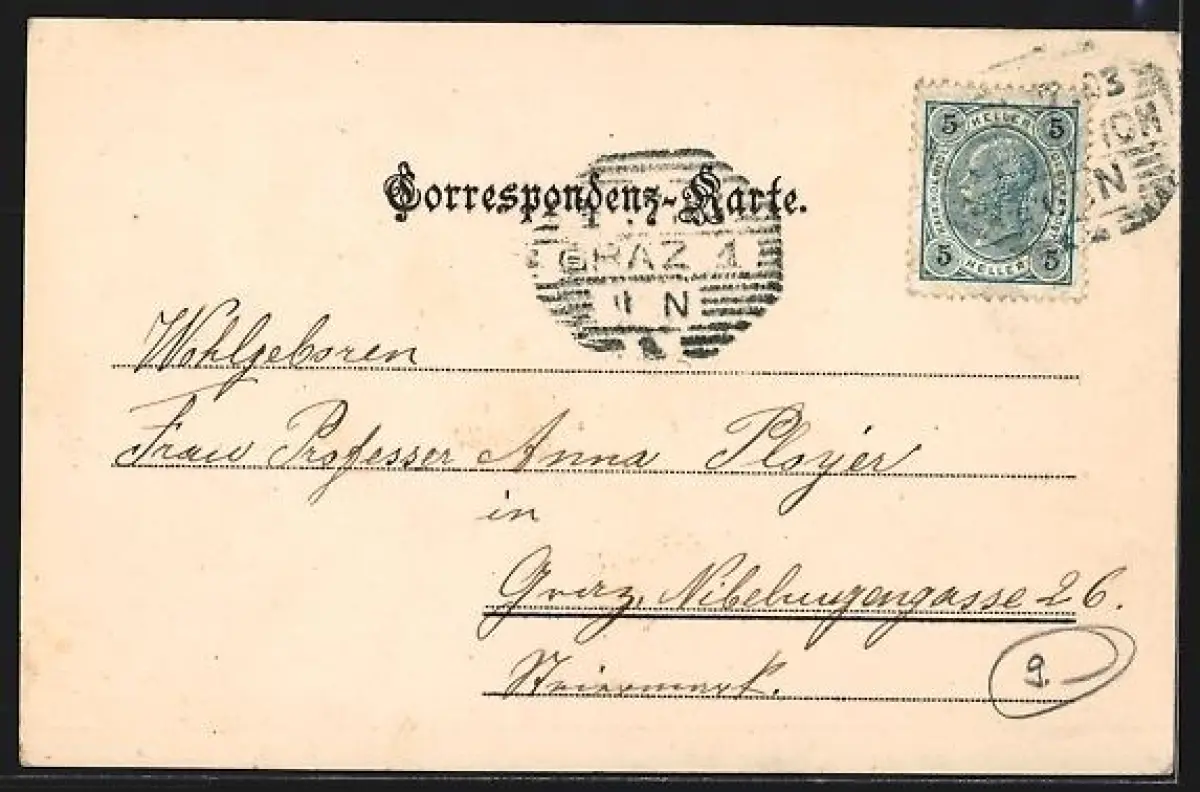 5 HELLER 5
5 HELLER 5
03
Correspondenz-Karte.
GRAZ 1
N
Wohlgeboren
Frau Professer Anna Ployer
in
Graz, Nibelungengasse 26.
Steiermark.
9.